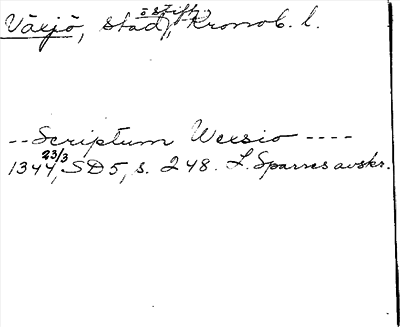 Växjö, stad, Kronob. l.
ö stift
--Scriptum Wexsio ----
1344 23/3, SD5, s. 248. L. Sparres avskr.